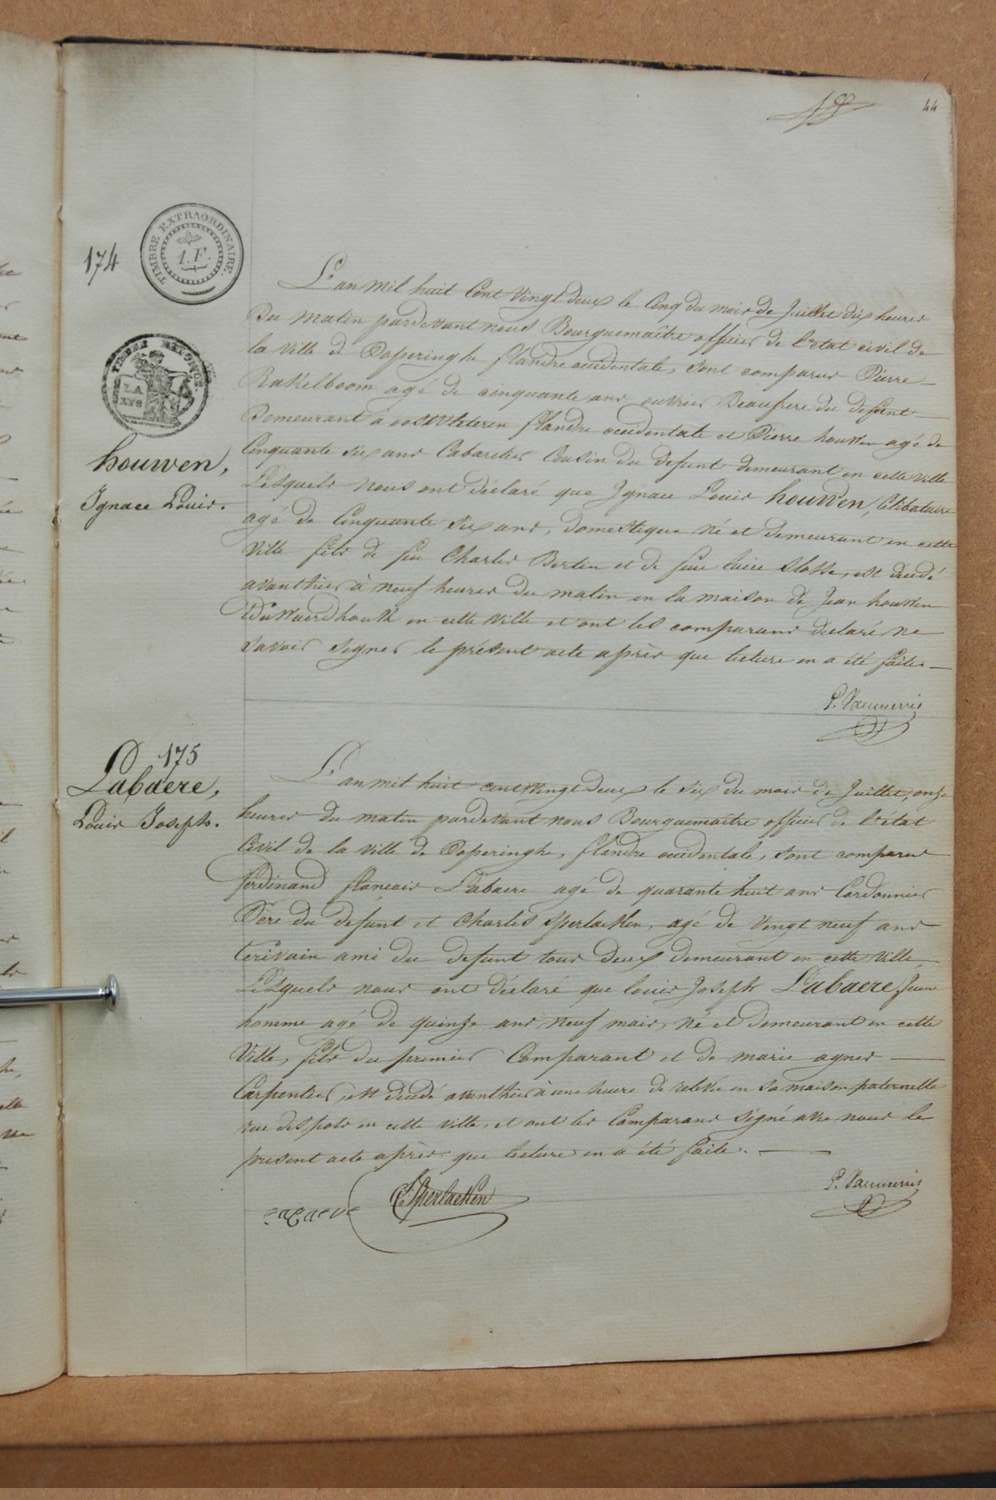 44
174
TIMBRE EXTRAORDINAIRE.
1.F.
houwen,
Ignace Louis.
L'an mil huit Cent vingt deux le Cinq du mois de Juillet dix heures
du matin pardevant nous Bourguemaître officier de l'etat civil de
la ville de Poperinghe flandre occidentale, sont comparus Pierre
Rakelboom agé de cinquante ans ouvrier Beaufrere du defunt
Demeurant à oostvleteren flandre occidentale et Pierre houwen agé de
Cinquante six ans Cabaretier Cousin du defunt demeurant en cette ville
Lesquels nous ont déclaré que Ignace Louis houwen, Célibataire
agé de Cinquante six ans, domestique né et demeurant en cette
ville fils de feu Charles Bertin et de feue Claire Slosse, est decedé
avanthier à neuf heures du matin en la maison de Jean houwen
en cette ville et ont les comparans declaré ne
savoir signer le présent acte après que lecture en a été faite.
175
Labaere,
Louis Joseph.
L'an mil huit cent vingt deux le six du mois de Juillet, onze
heures du matin pardevant nous Bourguemaître officier de l'état
Civil de la ville de Poperinghe, flandre occidentale, sont comparus
ferdinand françois Labaere agé de quarante huit ans Cordonnier
Père du defunt et Charles Sperlaeken, agé de vingt neuf ans
Ecrivain ami du defunt tous deux demeurant en cette ville,
Lesquels nous ont déclaré que louis Joseph Labaere, Jeune
homme agé de quinze ans neuf mois, né et demeurant en cette
ville, fils du premier Comparant et de marie agnes
Carpentier, est decedé avanthier à une heure de relevée en sa maison paternelle
rue des pots en cette ville, et ont les Comparans signé avec nous le
present acte après que lecture en a été faite.
C. Sperlaeken